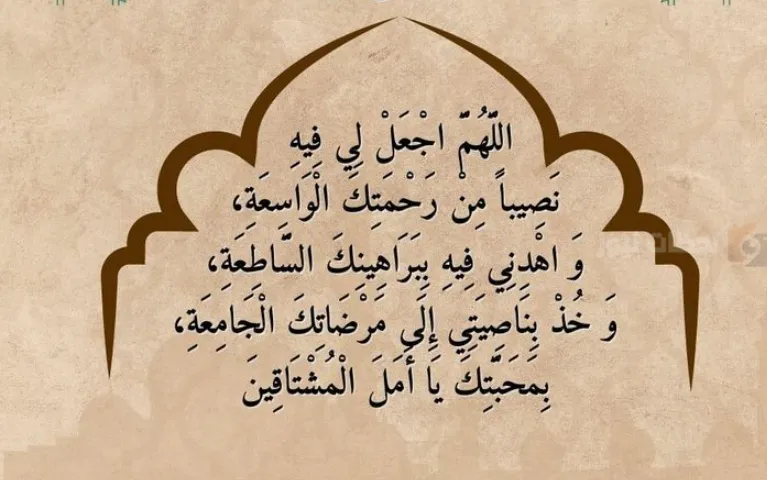 اللّهُمَّ اجْعَلْ لِي فِيهِ
نَصِيباً مِنْ رَحْمَتِكَ الْوَاسِعَةِ،
وَ اهْدِنِي فِيهِ بِبَرَاهِينِكَ السَّاطِعَةِ،
وَ خُذْ بِنَاصِيَتِي إِلَى مَرْضَاتِكَ الْجَامِعَةِ،
بِمَحَبَّتِكَ يَا أَمَلَ الْمُشْتَاقِينَ